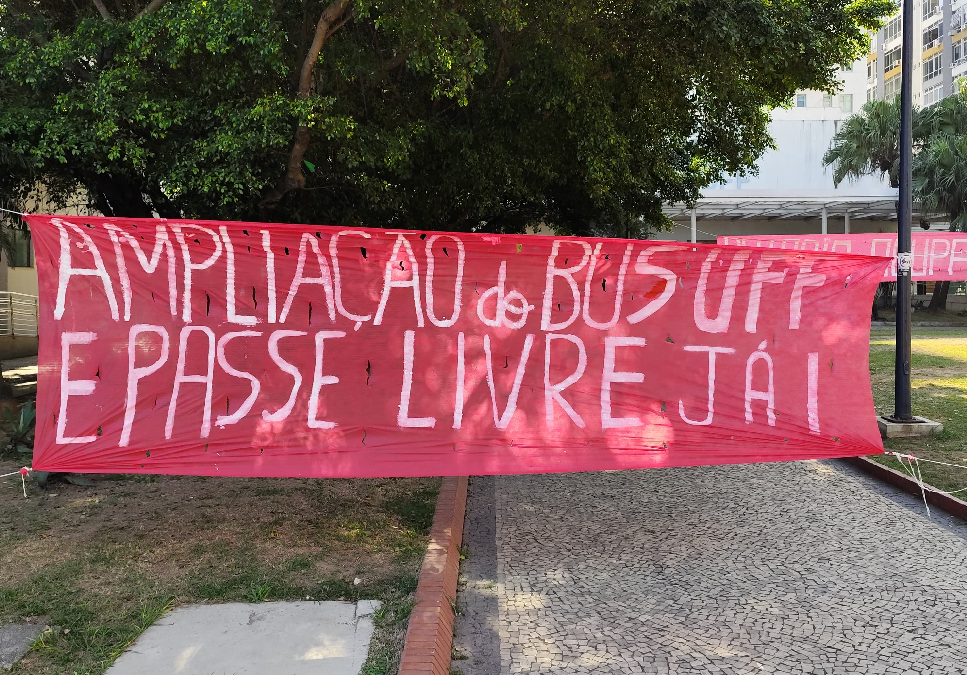 AMPLIAÇÃO do BUS UFF
E PASSE LIVRE JÁ!